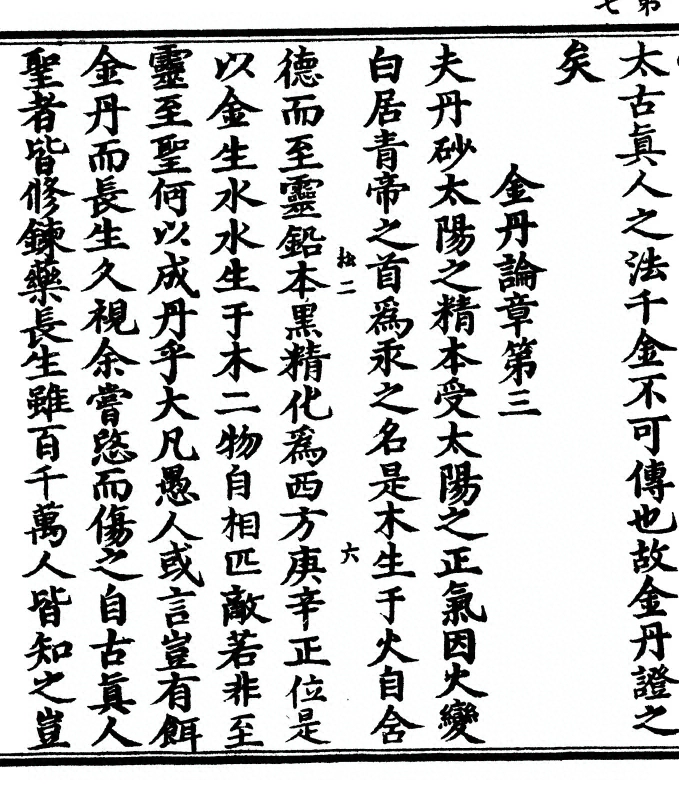 太古眞人之法千金不可傳也故金丹證之
矣
金丹論章第三
夫丹砂太陽之精本受太陽之正氣因火變
白居青帝之首爲汞之名是木生于火自含
德而至靈鉛本黑精化爲西方庚辛正位是
以金生水水生于木二物自相匹敵若非至
靈至聖何以成丹乎大凡愚人或言豈有餌
金丹而長生久視余嘗愍而傷之自古眞人
聖者皆修鍊藥長生雖百千萬人皆知之豈
二
六